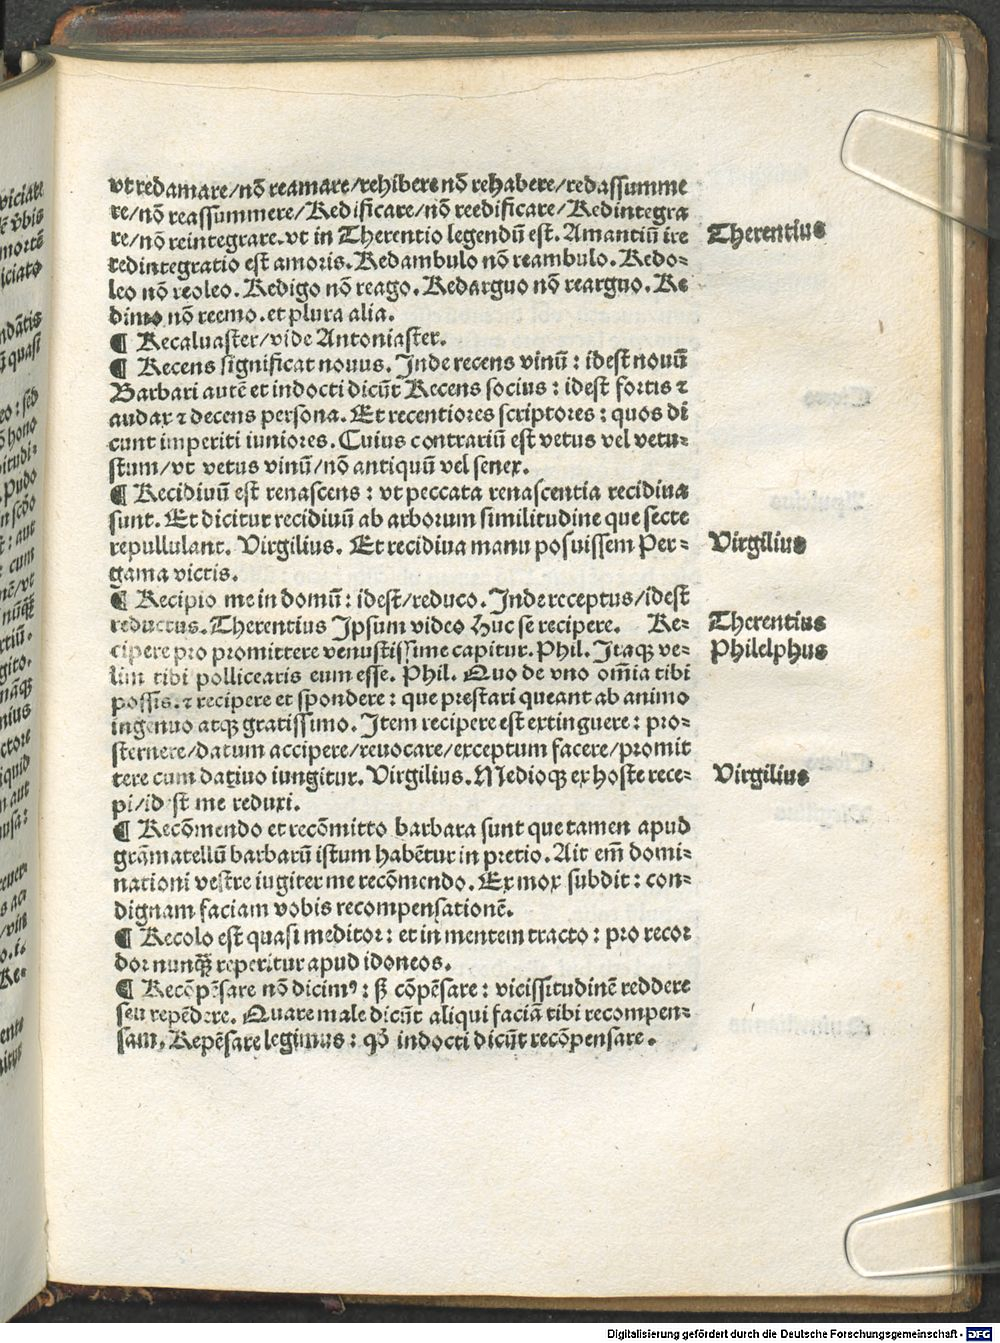 vt redamare/nō reamare/rehibere nō rehabere/redassumme
re/nō reassummere/Redificare/nō reedificare/Redintegra
re/nō reintegrare. vt in Therentio legendū est. Amantiū ire
redintegratio est amoris. Redambulo nō reambulo. Redo-
leo nō reoleo. Redigo nō reago. Redarguo nō rearguo. Re
dimo nō reemo. et plura alia.
¶ Recaluaster/vide Antoniaster.
¶ Recens significat nouus. Inde recens vinū: idest nouū
Barbari autē et indocti dicūt Recens socius: idest fortis ⁊
audax ⁊ decens persona. Et recentiores scriptores: quos di
cunt imperiti iuniores. Cuius contrariū est vetus vel vetu-
stum/vt vetus vinū/nō antiquū vel senex.
¶ Recidiuū est renascens: vt peccata renascentia recidiua
sunt. Et dicitur recidiuū ab arborum similitudine que secte
repullulant. Virgilius. Et recidiua manu posuissem Per-
gama victis.
¶ Recipio me in domū: idest/reduco. Inde receptus/idest
reductus. Therentius Ipsum video huc se recipere. Re-
cipere pro promittere venustissime capitur. Phil. Itaqꝫ ve-
lim tibi pollicearis eum esse. Phil. Quo de vno om̄ia tibi
possis. ⁊ recipere et spondere: que prestari queant ab animo
ingenuo atqꝫ gratissimo. Item recipere est extinguere: pro-
sternere/datum accipere/reuocare/exceptum facere/promit
tere cum datiuo iungitur. Virgilius. Medioqꝫ ex hoste rece-
pi/id st me reduxi.
¶ Recōmendo et recōmitto barbara sunt que tamen apud
grāmatellū barbarū istum habētur in pretio. Ait em̄ domi-
nationi vestre iugiter me recōmendo. Ex mox subdit: con-
dignam faciam vobis recompensationē.
¶ Recolo est quasi meditor: et in mentem tracto: pro recor
dor nunqꝫ̄ reperitur apud idoneos.
¶ Recōpēsare nō dicimꝰ: sꝫ cōpēsare: vicissitudinē reddere
seu repēdere. Quare male dicūt aliqui faciā tibi recompen-
sam. Repēsare legimus: qō indocti dicūt recōpensare.
Therentius
Virgilius
Therentius
Philelphus
Virgilius
Digitalisierung gefördert durch die Deutsche Forschungsgemeinschaft - DFG